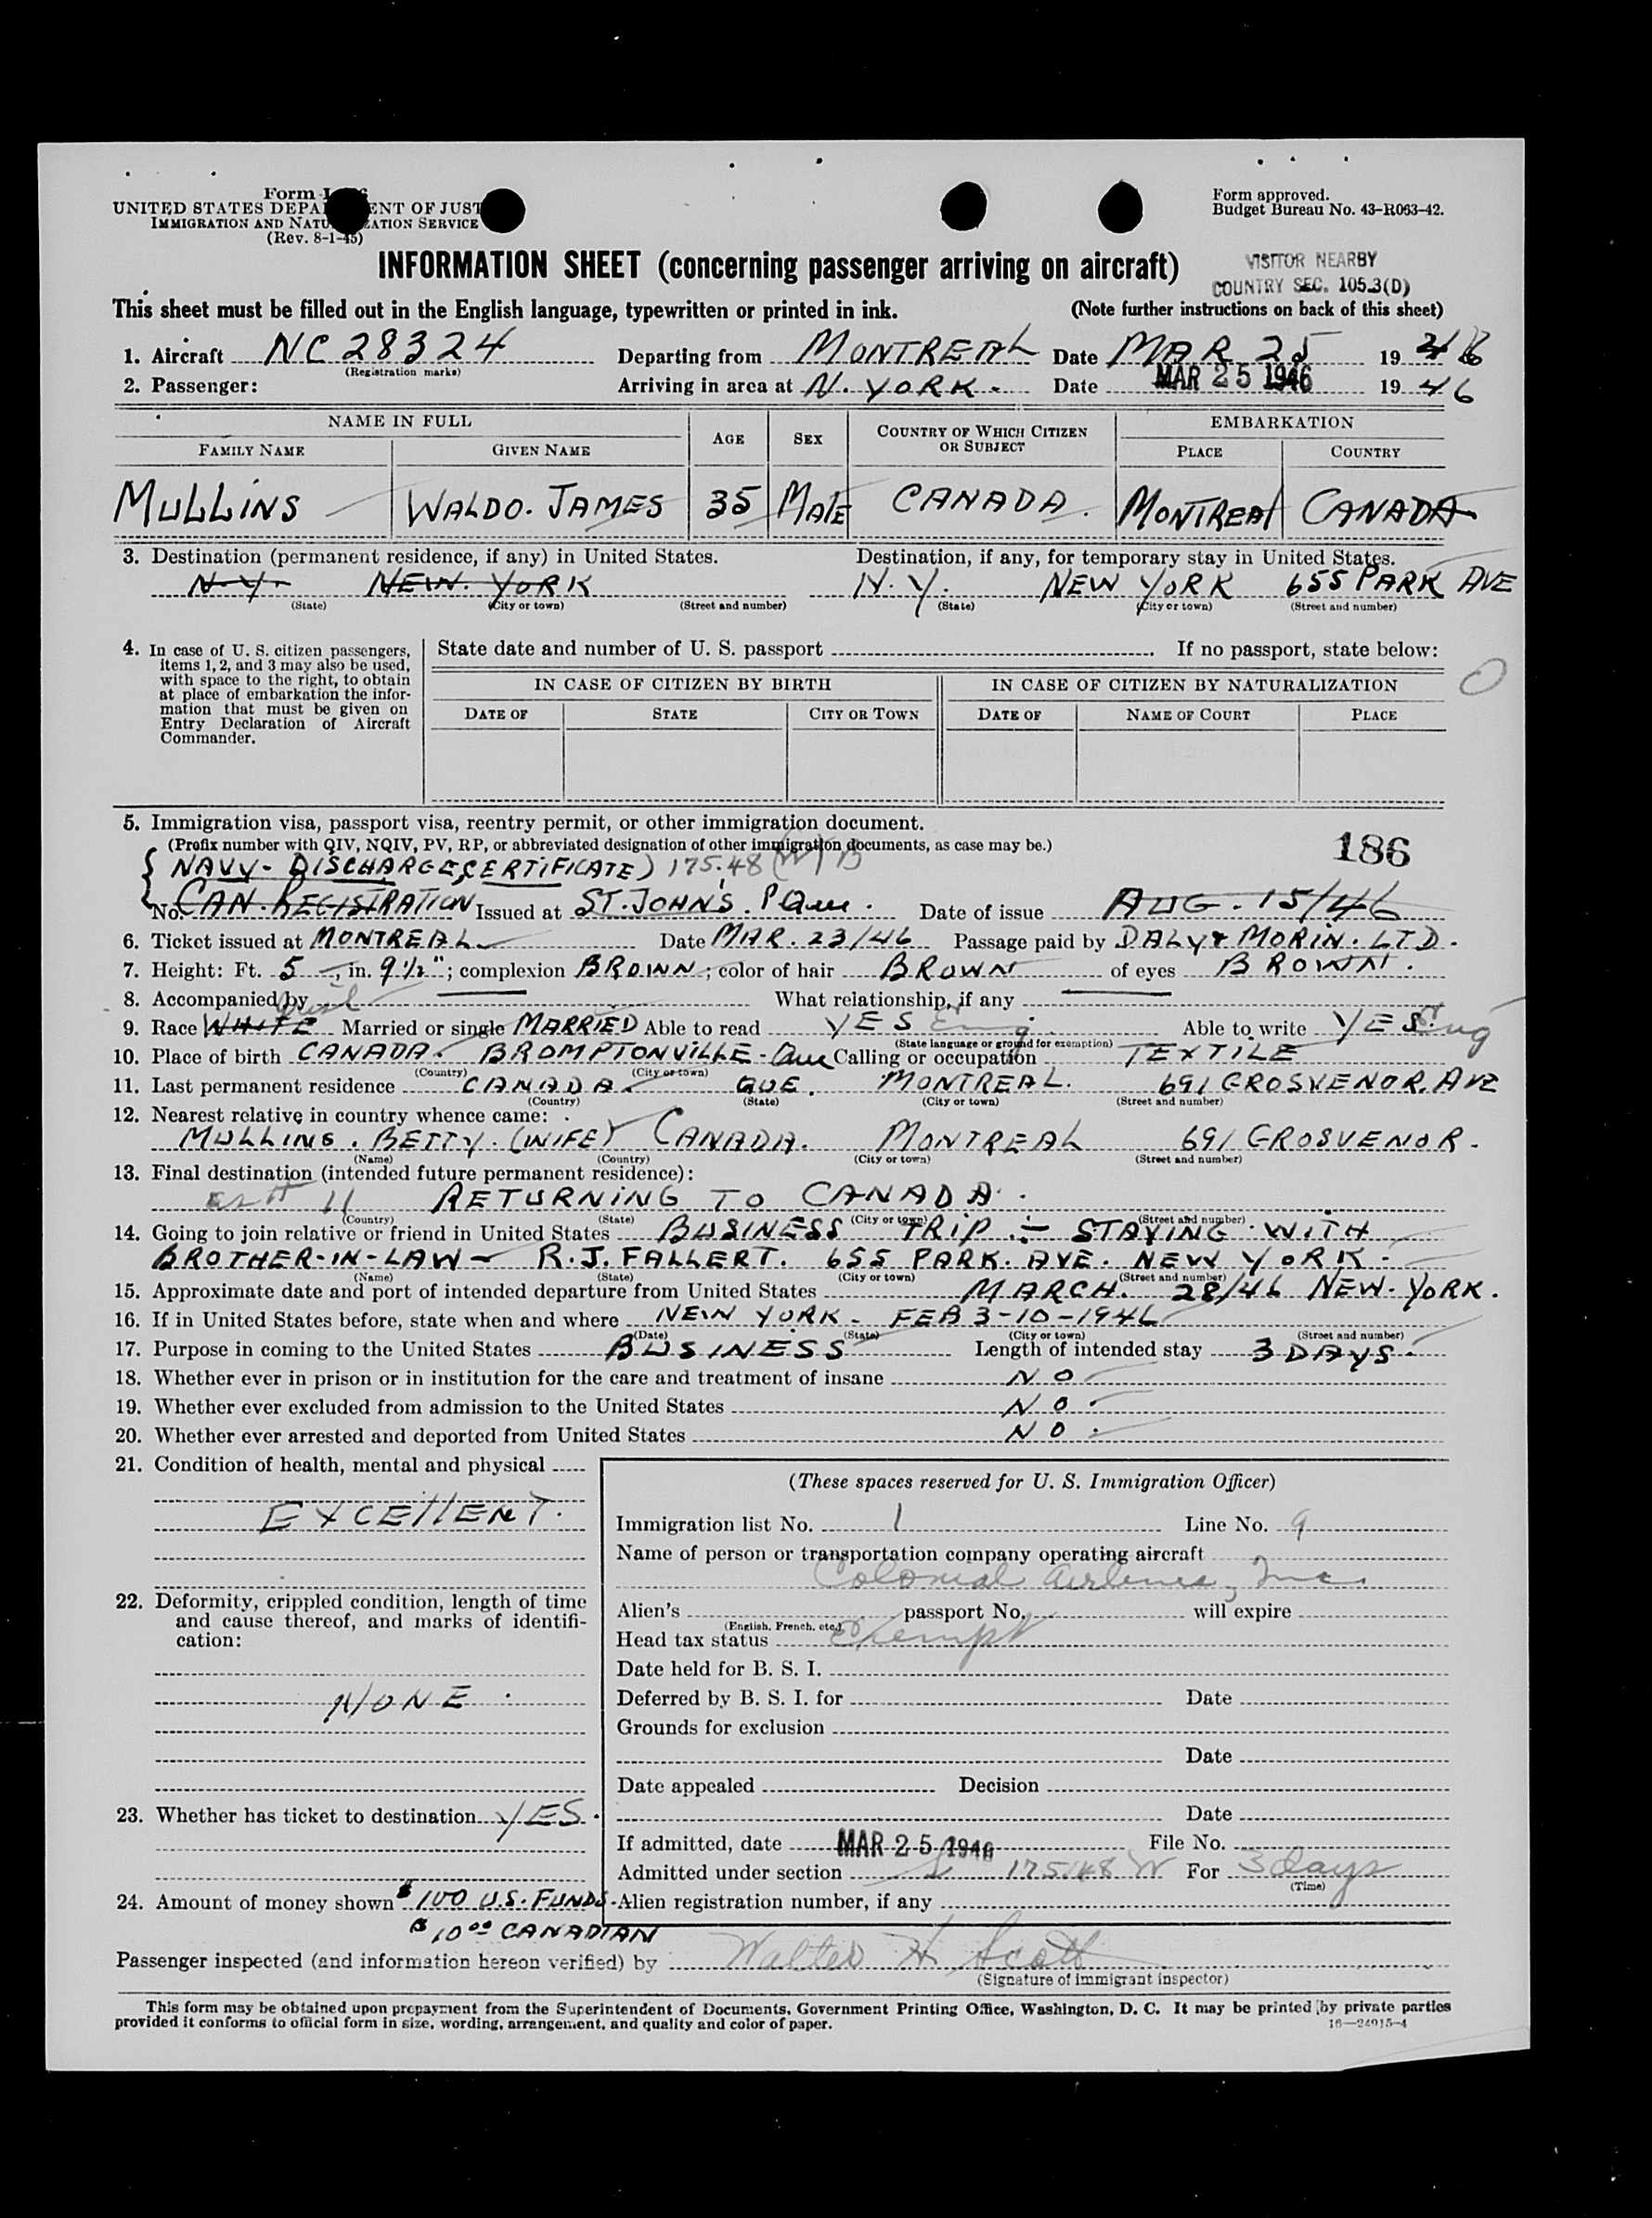 Form I-
UNITED STATES DEPA ENT OF JUST
IMMIGRATION AND NATU ZATION SERVICE
(Rev. 8-1-45)
Form approved.
Budget Bureau No. 43-R063-42.
INFORMATION SHEET (concerning passenger arriving on aircraft)
VISITOR NEARBY
COUNTRY SEC. 105.3(D)
This sheet must be filled out in the English language, typewritten or printed in ink. (Note further instructions on back of this sheet)
1. Aircraft NC 28324 Departing from MONTREAL Date MAR 25 19 46
(Registration marks)
2. Passenger: Arriving in area at N. YORK. Date MAR 25 1946 19 46
NAME IN FULL AGE SEX COUNTRY OF WHICH CITIZEN OR SUBJECT EMBARKATION
FAMILY NAME GIVEN NAME PLACE COUNTRY
MULLINS WALDO. JAMES 35 MALE CANADA. MONTREAL CANADA
3. Destination (permanent residence, if any) in United States. Destination, if any, for temporary stay in United States.
N.Y. NEW. YORK N.Y. NEW YORK 655 PARK AVE
(State) (City or town) (Street and number) (State) (City or town) (Street and number)
4. In case of U. S. citizen passengers, items 1, 2, and 3 may also be used, with space to the right, to obtain at place of embarkation the information that must be given on Entry Declaration of Aircraft Commander.
State date and number of U. S. passport If no passport, state below:
IN CASE OF CITIZEN BY BIRTH IN CASE OF CITIZEN BY NATURALIZATION
DATE OF STATE CITY OR TOWN DATE OF NAME OF COURT PLACE
5. Immigration visa, passport visa, reentry permit, or other immigration document.
(Prefix number with QIV, NQIV, PV, RP, or abbreviated designation of other immigration documents, as case may be.)
186
NAVY - DISCHARGE CERTIFICATE) 175.48
No. CAN. REGISTRATION Issued at ST. JOHN'S. P Que. Date of issue AUG. 15/46
6. Ticket issued at MONTREAL Date MAR. 23/46 Passage paid by DALY & MORIN. LTD.
7. Height: Ft. 5, in. 9 1/2"; complexion BROWN; color of hair BROWN of eyes BROWN.
8. Accompanied by What relationship, if any
9. Race WHITE Married or single MARRIED Able to read YES Eng. Able to write YES. Eng
(State language or ground for exemption)
10. Place of birth CANADA. BROMPTONVILLE - Que Calling or occupation TEXTILE
(Country) (City or town)
11. Last permanent residence CANADA. QUE. MONTREAL. 691 GROSVENOR. AVE
(Country) (State) (City or town) (Street and number)
12. Nearest relative in country whence came:
MULLINS. BETTY. (WIFE) CANADA. MONTREAL 691 GROSVENOR.
(Name) (Country) (City or town) (Street and number)
13. Final destination (intended future permanent residence):
11 RETURNING TO CANADA.
(Country) (State) (City or town) (Street and number)
14. Going to join relative or friend in United States BUSINESS TRIP - STAYING WITH
BROTHER-IN-LAW - R.J. FALLERT. 655 PARK. AVE. NEW YORK.
(Name) (State) (City or town) (Street and number)
15. Approximate date and port of intended departure from United States MARCH. 28/46 NEW. YORK.
16. If in United States before, state when and where NEW YORK - FEB 3-10-1946
(Date) (State) (City or town) (Street and number)
17. Purpose in coming to the United States BUSINESS Length of intended stay 3 DAYS.
18. Whether ever in prison or in institution for the care and treatment of insane NO
19. Whether ever excluded from admission to the United States NO.
20. Whether ever arrested and deported from United States NO.
21. Condition of health, mental and physical
EXCELLENT.
22. Deformity, crippled condition, length of time and cause thereof, and marks of identification:
NONE.
23. Whether has ticket to destination YES.
24. Amount of money shown $100 U.S. FUNDS.
$10.00 CANADIAN
(These spaces reserved for U. S. Immigration Officer)
Immigration list No. 1 Line No. 9
Name of person or transportation company operating aircraft
Colonial Airlines, Inc.
Alien's passport No. will expire
(English, French, etc.)
Head tax status Exempt
Date held for B. S. I.
Deferred by B. S. I. for Date
Grounds for exclusion
Date
Date appealed Decision
Date
If admitted, date MAR 25 1946 File No.
Admitted under section 175.48 For 3 days
(Time)
Alien registration number, if any
Passenger inspected (and information hereon verified) by Walter H. Scott
(Signature of immigrant inspector)
This form may be obtained upon prepayment from the Superintendent of Documents, Government Printing Office, Washington, D. C. It may be printed by private parties
provided it conforms to official form in size, wording, arrangement, and quality and color of paper.
16—24915-4